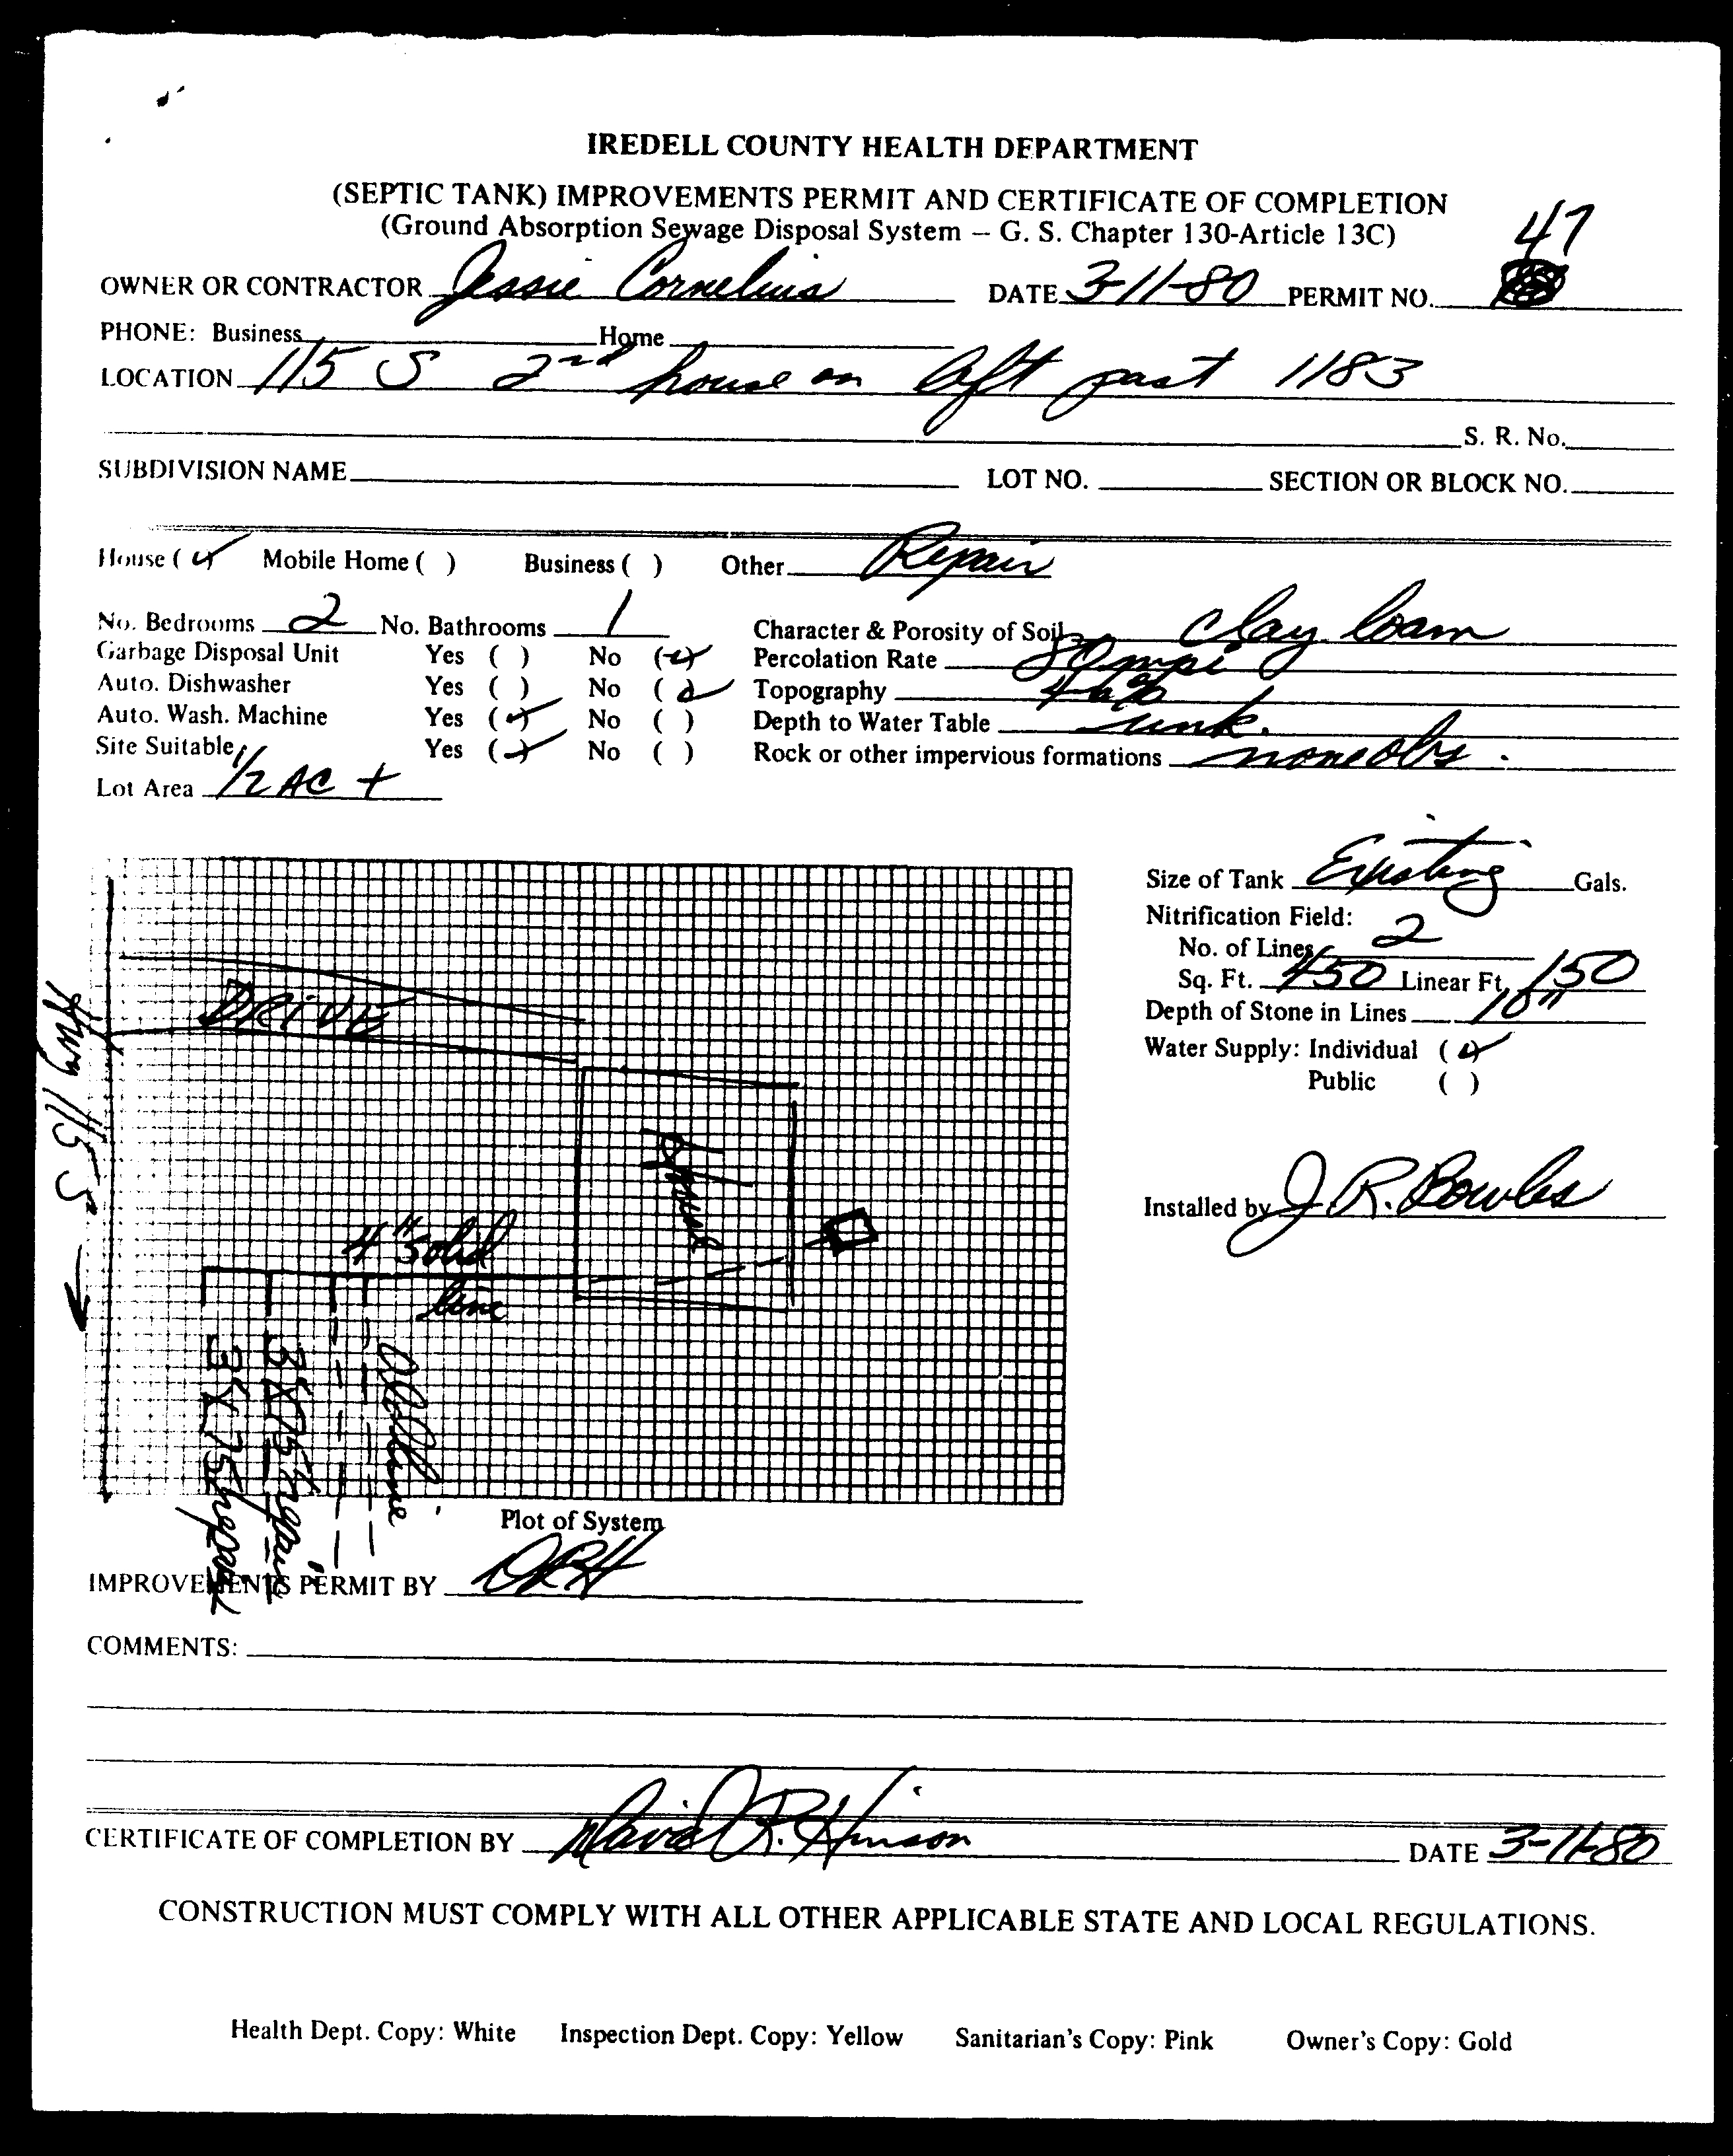 IREDELL COUNTY HEALTH DEPARTMENT
(SEPTIC TANK) IMPROVEMENTS PERMIT AND CERTIFICATE OF COMPLETION
(Ground Absorption Sewage Disposal System – G. S. Chapter 130-Article 13C)
47
OWNER OR CONTRACTOR Jessie Cornelius DATE 3-11-80 PERMIT NO.
PHONE: Business Home
LOCATION 115 S 2nd house on left past 1183
S. R. No.
SUBDIVISION NAME LOT NO. SECTION OR BLOCK NO.
House (✓) Mobile Home ( ) Business ( ) Other Repair
No. Bedrooms 2 No. Bathrooms 1 Character & Porosity of Soil clay loam
Garbage Disposal Unit Yes ( ) No (✓) Percolation Rate 80 mpi
Auto. Dishwasher Yes ( ) No (✓) Topography
Auto. Wash. Machine Yes (✓) No ( ) Depth to Water Table unk.
Site Suitable Yes (✓) No ( ) Rock or other impervious formations none obs.
Lot Area 1/2 AC +
Size of Tank Existing Gals.
Nitrification Field:
No. of Lines 2
Sq. Ft. 450 Linear Ft. 150
Depth of Stone in Lines 10"
Water Supply: Individual (✓)
Public ( )
Installed by J. R. Bowles
DRIVE
Hwy 115 S
House
4" Solid
line
Old line
3 X 75' repair
3 X 75' repair
Plot of System
IMPROVEMENTS PERMIT BY DRH
COMMENTS:
CERTIFICATE OF COMPLETION BY David R. Hinson DATE 3-11-80
CONSTRUCTION MUST COMPLY WITH ALL OTHER APPLICABLE STATE AND LOCAL REGULATIONS.
Health Dept. Copy: White Inspection Dept. Copy: Yellow Sanitarian's Copy: Pink Owner's Copy: Gold